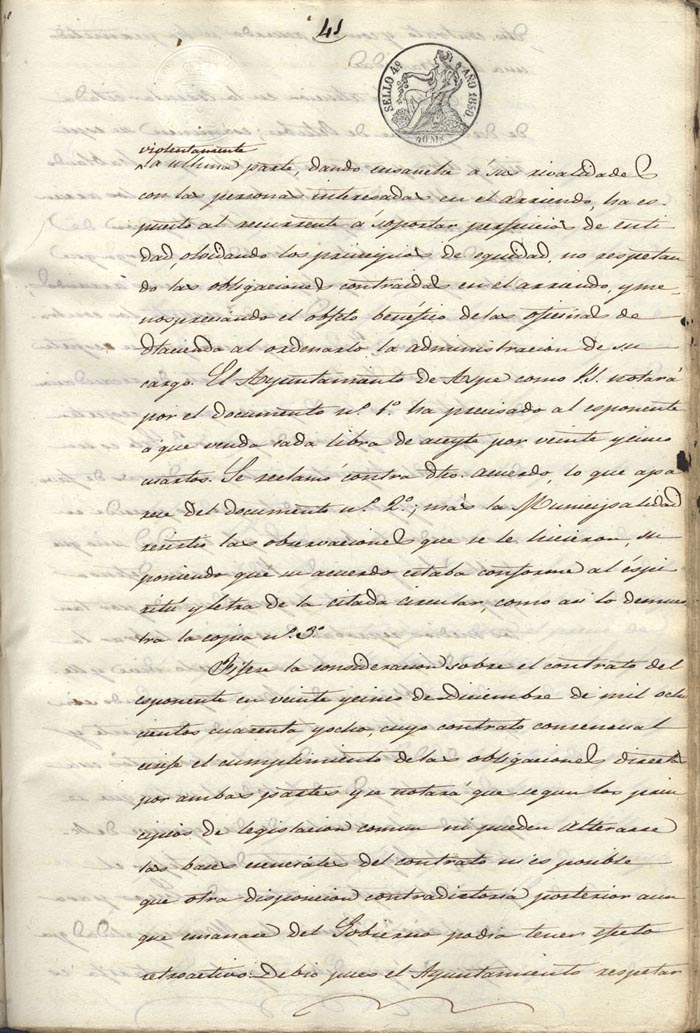 41
SELLO 4º AÑO 1850
40 Ms
violentamente
la ultima parte, dando ensanche á sus rivalidades
con las personas interesadas en el arriendo, ha es-
puesto al recurrente á soportar perjuicios de enti
dad, olvidando los principios de equidad, no respetan
do las obligaciones contraidas en el arriendo, y me-
nospreciando el objeto benéfico de las oficinas de
Hacienda al ordenarlo la administracion de su
cargo. El Ayuntamiento de Aspe como V.S. notará
por el documento nº 1º ha precisado al esponente
á que venda cada libra de aceyte por veinte y cinco
cuartos. Se reclamó contra dho. acuerdo, lo que apa
rece del documento nº 2º; más la Municipalidad
resistió las observaciones que se le hicieron, su
poniendo que su acuerdo estaba conforme al espi
ritu y letra de la citada circular, como asi lo demues
tra la copia nº 3º
Fijese la consideracion sobre el contrato del
esponente en veinte y cinco de Diciembre de mil ocho
cientos cuarenta y ocho, cuyo contrato consensual
exije el cumplimiento de las obligaciones
por ambas partes y se notará que segun los prin
cipios de legislacion comun ni pueden alterarse
las bases esenciales del contrato ni es posible
que otra disposicion contradictoria posterior aun
que emanase del Gobierno podia tener efecto
retroactivo. Debio pues el Ayuntamiento respetar